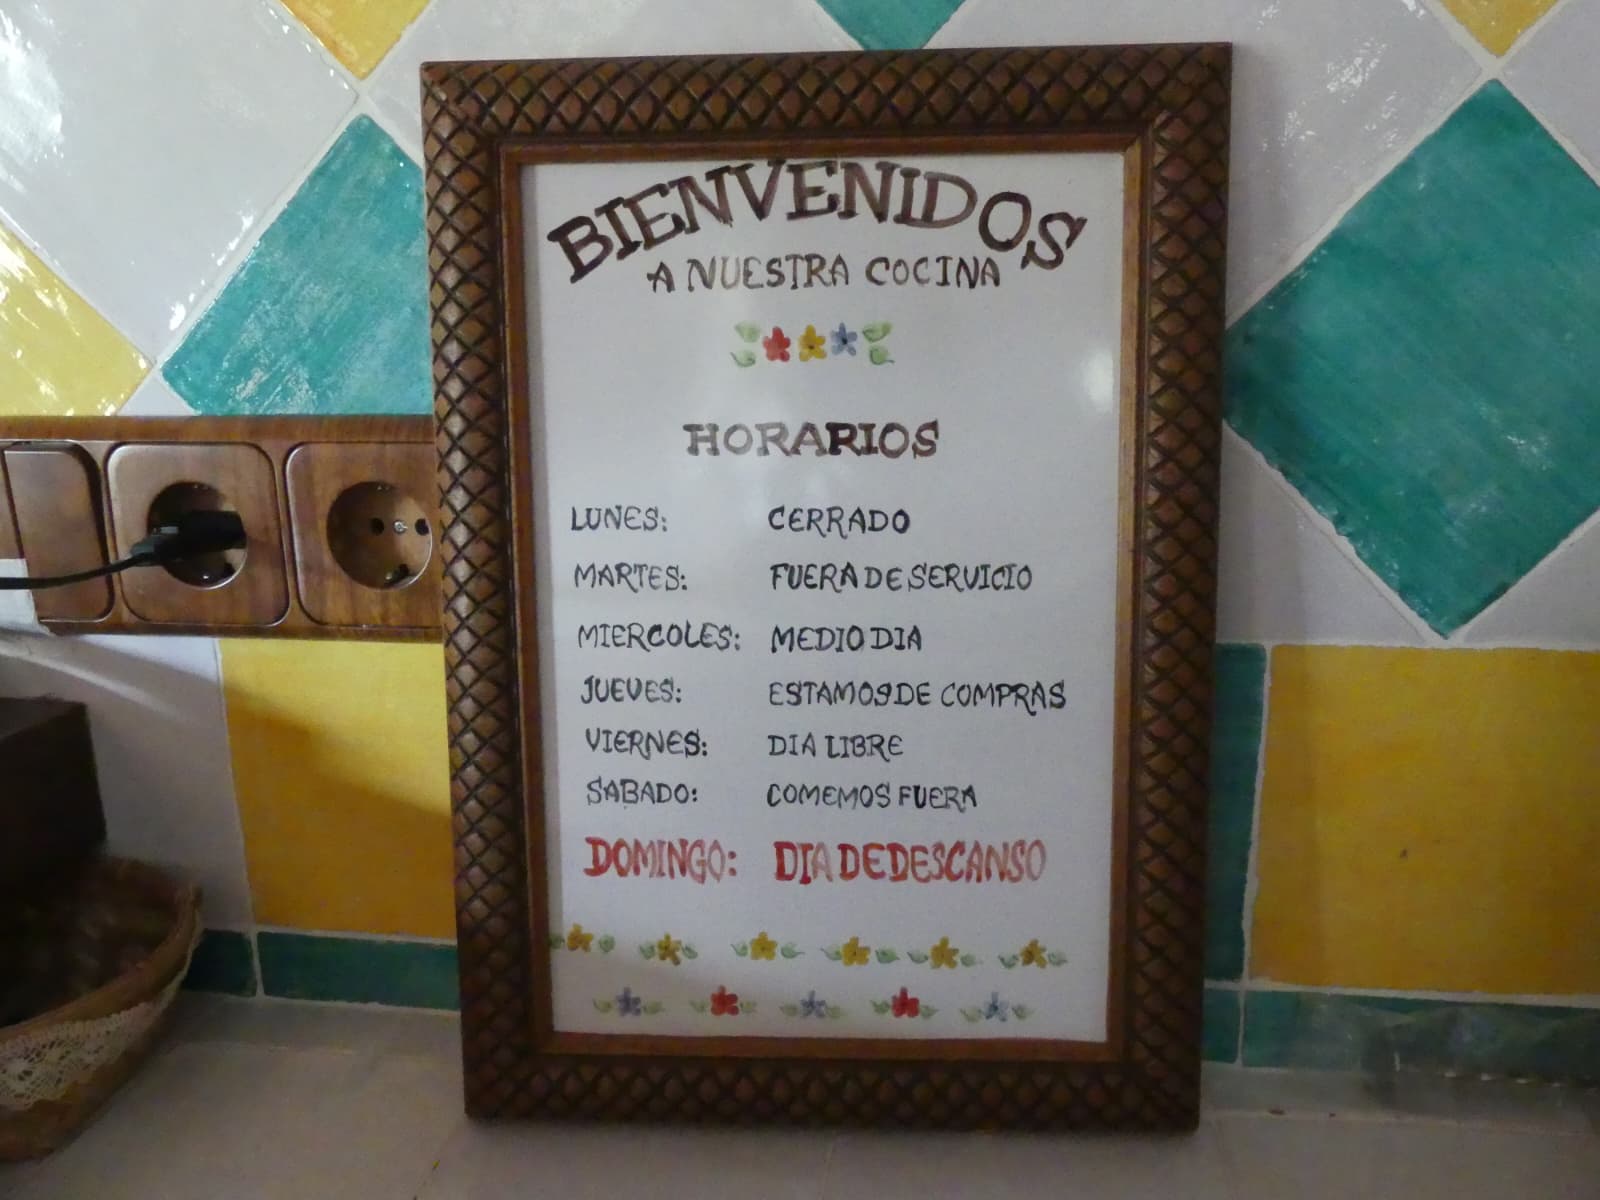 BIENVENIDOS
A NUESTRA COCINA
HORARIOS
LUNES: CERRADO
MARTES: FUERA DE SERVICIO
MIERCOLES: MEDIO DIA
JUEVES: ESTAMOS DE COMPRAS
VIERNES: DIA LIBRE
SABADO: COMEMOS FUERA
DOMINGO: DIA DE DESCANSO